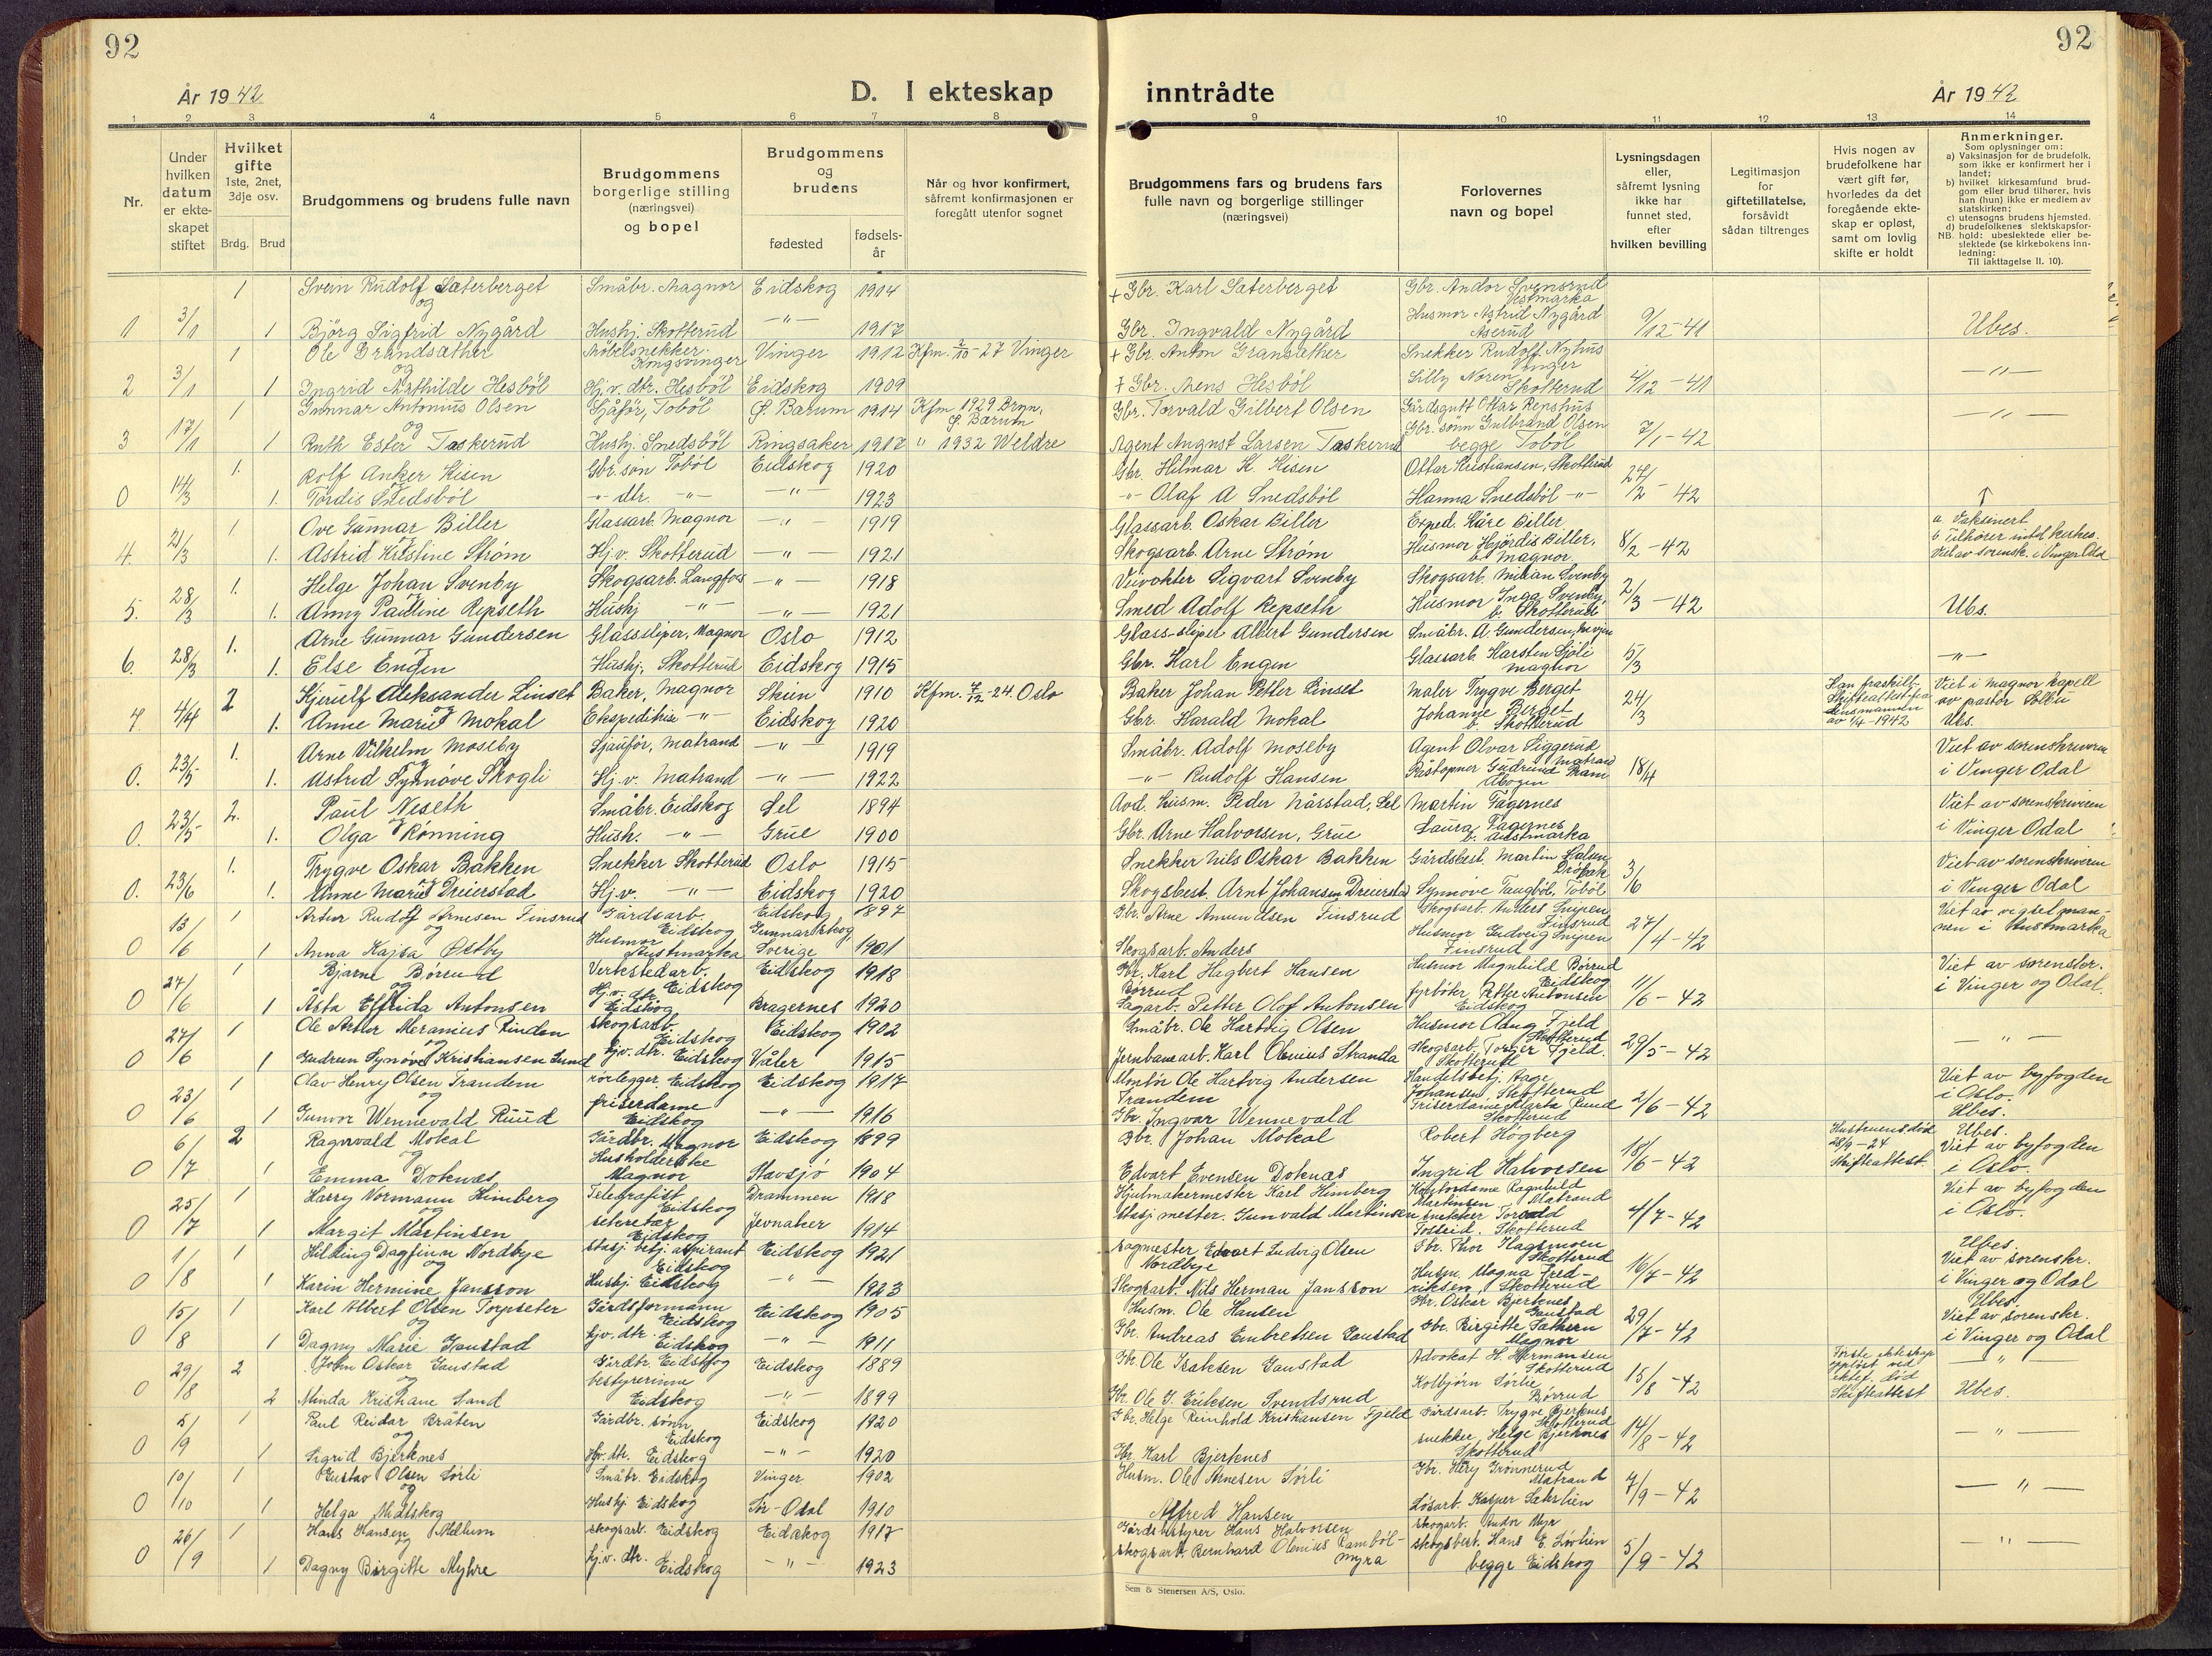 92
92
År 1942
D. I ekteskap inntrådte
År 1942
1 2 3 4 5 6 7 8 9 10 11 12 13 14
Nr.
Under hvilken datum er ekteskapet stiftet
Hvilket gifte 1ste, 2net, 3dje osv.
Brdg. Brud
Brudgommens og brudens fulle navn
Brudgommens borgerlige stilling (næringsvei) og bopel
Brudgommens og brudens
fødested
fødselsår
Når og hvor konfirmert, såfremt konfirmasjonen er foregått utenfor sognet
Brudgommens fars og brudens fars fulle navn og borgerlige stillinger (næringsvei)
Forlovernes navn og bopel
Lysningsdagen eller, såfremt lysning ikke har funnet sted, efter hvilken bevilling
Legitimasjon for giftetillatelse, forsåvidt sådan tiltrenges
Hvis nogen av brudefolkene har vært gift før, hvorledes da det foregående ekteskap er opløst, samt om lovlig skifte er holdt
Anmerkninger.
Som oplysninger om:
a) Vaksinasjon for de brudefolk, som ikke er konfirmert her i landet;
b) hvilket kirkesamfund brudgom eller brud tilhører, hvis han (hun) ikke er medlem av statskirken;
c) utensogns brudens hjemsted.
d) brudefolkenes slektskapsforhold: ubeslektede eller beslektede (se kirkebokens innledning:
NB.
Til iakttagelse II. 10).
1 3/1 1 Svein Rudolf Sæterberget Småbr. Magnor Eidskog 1914 + Gbr. Karl Sæterberget Gbr. Andor Svensrud Vestmarka
og
1 Bjørg Sigfrid Nygård Hushj. Skotterud —"— 1917 Gbr. Ingvald Nygård Husmor Astrid Nygård Åserud 9/12-41 Ubes.
2 3/1 1 Ole Brandsæther Møbelsnekker Kongsvinger Vinger 1912 Kfm. 2/10-27 Vinger + Gbr. Anton Gransæther Snekker Rudolf Nyhus Vinger
og
1 Ingrid Mathilde Hesbøl Hj.v. dtr. Hesbøl Eidskog 1909 + Gbr. Mens Hesbøl Lilly Noren Skotterud 4/12-41 —"—
3 17/1 1 Gunnar Antonius Olsen Sjåfør, Tobøl Ø. Bærum 1914 Kfm 1929 Bryn, Ø. Bærum Gbr. Torvald Gilbert Olsen Gårdsgutt Ottar Repshus
og
1 Ruth Ester Taskerud Hushj. Snedsbøl Ringsaker 1917 " 1932 Weldre Agent August Larsen Taskerud Gbr. sønn Gulbrand Olsen begge Tobøl 7/1-42 —"—
0 14/3 1. Rolf Anker Kisen Gbr. søn Tobøl Eidskog 1920 Gbr. Hilmar K. Kisen Ottar Kristiansen, Skotterud
1. Tordis Snedsbøl -"- dtr. -"- —"— 1923 -"- Olaf A Snedsbøl Hanna Snedsbøl -"- 24/2-42
4. 21/3 1 Ove Gunnar Biller Glassarb. Magnor —"— 1919 Glassarb. Oskar Biller Exped. Kåre Biller
1. Astrid Kristine Strøm Hj.v. Skotterud —"— 1921 Skogsarb. Arne Strøm Husmor Hjørdis Biller, b. Magnor 8/2-42 a. Vaksinert b tilhører intet kirkes. Viet av sorensk. i Vinger Odal
5. 28/3 1. Helge Johan Svenby Skogsarb. Langfos —"— 1918 Veivokter Sigvart Svenby Skogsarb. Milian Svenby
1. Anny Pauline Repseth Hushj -"- —"— 1921 Smed Adolf Repseth Husmor Inga Svenby, b. Skotterud 2/3-42 Ubs.
6. 28/3 1. Arne Gunnar Gundersen Glassliper, Magnor Oslo 1912 Glass-sliper Albert Gundersen Småbr. A. Gundersen,
1. Else Engen Hushj. Skotterud Eidskog 1915 Gbr. Karl Engen Glassarb. Karsten Sjøli Magnor 5/3 —"—
7 4/4 2 Kjerulf Aleksander Linset Baker, Magnor Skien 1910 Kfm. 7/12-24. Oslo Baker Johan Petter Linset Maler Trygve Berget
og
1. Anne Marie Mokal Ekspeditrise -"- Eidskog 1920 Gbr. Harald Mokal Johanne Berget b. Skotterud 24/3 Han fraskilt. Skifteattest fra lensmannen av 1/4-1942 Viet i Magnor kapell av pastor Ubs.
0. 23/5 1. Arne Vilhelm Moseby Sjauför, Matrand —"— 1919 Småbr. Adolf Moseby Agent Olvar Siggerud Matrand
1. Astrid Synnøve Skogli Hj.v. Matrand —"— 1922 -"- Rudolf Hansen Påstopner Gudrund Åbogen 18/4 Viet av sorenskriveren i Vinger Odal
0. 23/5 2. Paul Neseth Småbr. Eidskog Sel 1894 Avd. husm. Peder Nåsstad, Sel Martin Fagernes
1. Olga Rønning Hush. -"- Grue 1900 Gbr. Arne Halvorsen, Grue Laura Fagernes b. Austmarka Viet av sorenskriveren i Vinger Odal
0. 23/6 1. Trygve Oskar Bakken Snekker Skotterud Oslo 1915 Snekker Nils Oskar Bakken Gårdsbest. Martin Halsen, Drøbak
1. Anne Marie Dreierstad Hj.v. -"- Eidskog 1920 Skogsbest. Arnt Johansen Dreiersta Synnøve Taugbøl, Tobøl 3/6 Viet av sorenskriveren i Vinger Odal
0 13/6 1 Artur Rudolf Arnesen Finsrud Gårdsarb. Eidskog Eidskog 1897 Gbr. Arne Amundsen Finsrud Skogsarb. Anders Snipen Finsrud
og
1 Anna Kajsa Østby Husmor Austmarka Gunnarskog, Sverige 1901 Skogsarb. Anders Husmor Ludveig Snipen Finsrud 27/4-42 Viet av vigselmannen i Austmarka
0 27/6 1 Bjarne Børrud Verkstedarb. Eidskog Eidskog 1918 Gbr. Karl Hagbert Hansen Børrud Husmor Magnhild Børrud Eidskog
og
1 Åsta Elfrida Antonsen Hj.v. dtr. Eidskog Bragernes 1920 Sagarb. Petter Olof Antonsen fyrbøter Petter Antonsen Eidskog 11/6-42 Viet av sorenskr. i Vinger og Odal.
0 27/6 1 Ole Arthur Meranius Linden skogsarb. Eidskog Eidskog 1902 Småbr. Ole Hartvig Olsen Husmor Fjeld Skotterud
og
1 Gudrun Synøve Kristiansen Lund hjv. dtr. Eidskog Våler 1915 Jernbanearb. Karl Olenius Stranda Skogsarb. Torger Fjeld. Skotterud 29/5-42 —"—
0 23/6 1 Olav Henry Olsen Trandem rørlegger Eidskog Eidskog 1917 Montør Ole Hartvig Andersen Trandem Handelsbetj. Aage Johansen Skotterud
og
1 Gunvor Wennevald Ruud friserdame Eidskog —"— 1916 Gbr. Ingvar Wennevald Friserdame Marta Ruud Skotterud 2/6-42 Viet av byfogden i Oslo. Ubes.
0 6/7 2 Ragnvald Mokal Gårdbr. Magnor Eidskog 1899 Gbr. Johan Mokal Robert Högberg
og
1 Emma Doknæs Husholderske Magnor Stavsjø 1904 Edvart Evensen Doknæs Ingrid Halvorsen 18/6-42 Hustruens død 28/9-24 Skifteattest. Ubes. Viet av byfogden i Oslo.
0 25/7 1 Harry Normann Himberg Telegrafist Eidskog Drammen 1918 Hjulmakermester Karl Himberg Kontordame Ragnhild Martinsen Matrand
og
1 Margit Martinsen sekretær Eidskog Jevnaker 1914 Stasj mester. Gunvald Martinsen snekker Torvald Tostrid. Skotterud 4/7-42 Viet av byfogden i Oslo.
0 1/8 1 Hilding Dagfinn Nordbye stasj. betj. aspirant Eidskog Eidskog 1921 sagmester Edvart Ludvig Olsen Nordbye Gbr. Thor Hagsmoen Skotterud
og
1 Karin Hermine Jansson Hushj. Eidskog —"— 1923 Skogsarb. Nils Herman Jansson Husm. Magna Fredriksen, Skotterud 16/7-42 Ubes. Viet av sorenskr. i Vinger og Odal
0 15/8 1 Karl Albert Olsen Torpseter Gårdsformann Eidskog Eidskog 1905 Husm. Ole Hansen Gbr. Oskar Bjerknes Gaustad
og
1 Dagny Marie Gaustad hjv. dtr. Eidskog —"— 1911 Gbr. Andreas Embretsen Gaustad Gbr. Birgitte Sæthern Magnor 29/7-42 Ubes. Viet av sorenskr. i Vinger og Odal
0 29/8 2 John Oskar Gaustad Gårdbr. Eidskog Eidskog 1889 Gbr. Ole Isaksen Gaustad Advokat H. Hermansen Skotterud
og
2 Minda Kristiane Sand bestyrerinne Eidskog —"— 1899 Gbr. Ole G. Eriksen Svendsrud Kolbjørn Sørlie Børrud 15/8-42 Første ekteskap opløst ved ektef. død Skifteattest —"— Ubes.
0 5/9 1 Paul Reidar Bråten Gårdbr. sønn Eidskog Eidskog 1920 Gbr. Helge Reinhold Kristiansen Fjeld Gårdsarb. Trygve Bjerknes Skotterud
og
1 Sigrid Bjerknes Hjv. dtr. Eidskog —"— 1920 Gbr. Karl Bjerknes snekker Helge Bjerknes Skotterud 14/8-42 —"—
0 10/10 1 Gustav Olsen Sørli Småbr. Eidskog Vinger 1902 Husm. Ole Arnesen Sørli Gbr. Grønnerud Matrand
og
1 Helga Midtskog Hushj Eidskog Sør-Odal 1910 Alfred Hansen Løsarb. Kasper Sæterlien 7/9-42 —"—
0 26/9 1 Hans Hansen Melhum skogsarb. Eidskog Eidskog 1917 Gårdsbestyrer Hans Halvorsen skogarb. Andor Myr
og
1 Dagny Birgitte Myhre hjv. dtr. Eidskog —"— 1923 skogsarb. Bernhard Olenius Rambøl-myra skogsbest. Hans E. Løvlien begge Eidskog 5/9-42 —"—
Sem & Stenersen A/S, Oslo.